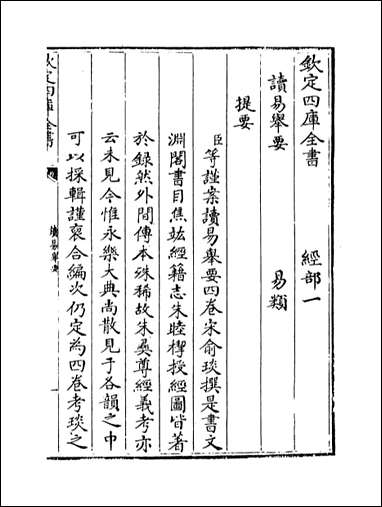 欽定四庫全書　　經部一
讀易舉要　　易類
提要
臣等謹案讀易舉要四卷宋俞琰撰是書文
淵閣書目焦竑經籍志朱睦㮮授經圖皆著
於錄然外間傳本殊稀故朱彝尊經義考亦
云未見今惟永樂大典尚散見于各韻之中
可以採輯謹裒合編次仍定為四卷考琰之
欽定四庫全書
讀易舉要